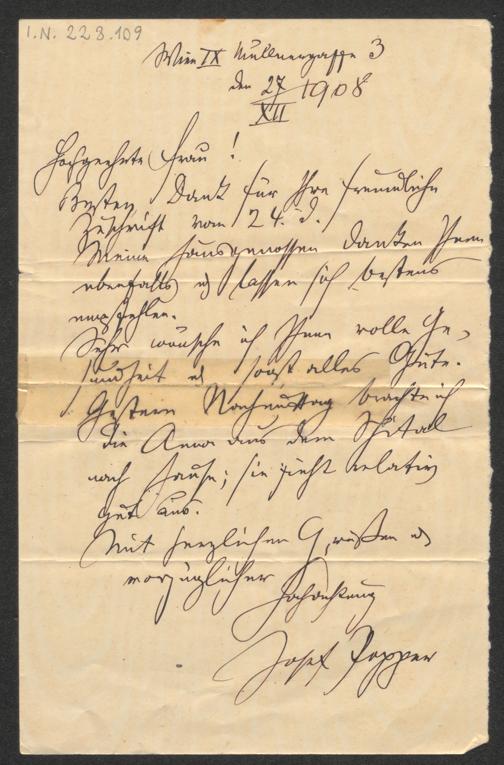 I.N. 228.109
Wien IX Müllnergasse 3
den 27/XII 1908
Hochgeehrte Frau!
Besten Dank für Ihre freundliche
Zuschrift vom 24. d.
Meine Hausgenossen danken Ihnen
ebenfalls u lassen sich bestens
empfehlen.
Sehr wünsche ich Ihnen volle Ge-
sundheit u sonst alles Gute.
Gestern Nachmittag brachte ich
die Anna aus dem Spital
nach Hause; sie sieht relativ
gut aus.
Mit herzlichen Grüßen u
vorzüglicher
Hochachtung
Josef Popper